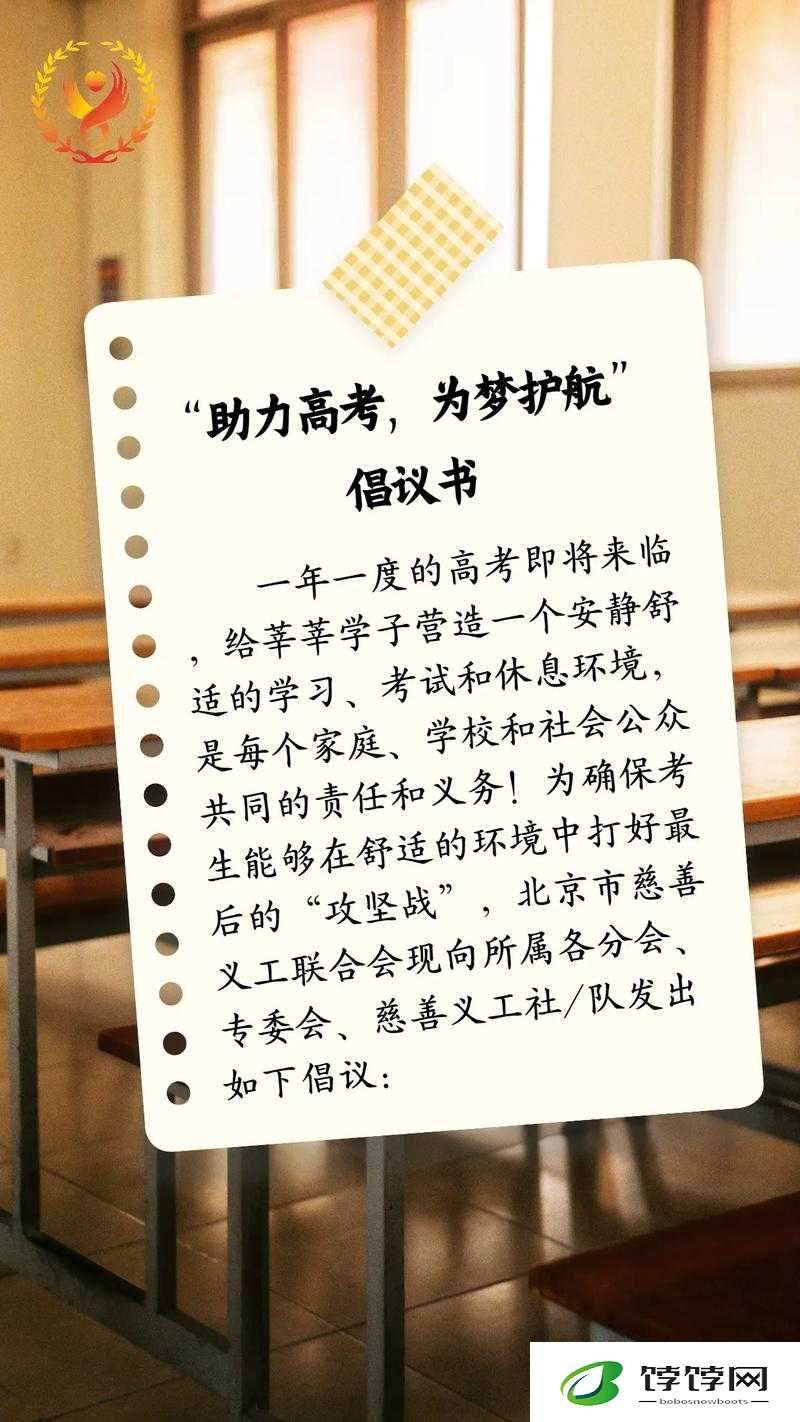 “助力高考，为梦护航”
倡议书
一年一度的高考即将来临
，给莘莘学子营造一个安静舒
适的学习、考试和休息环境，
是每个家庭、学校和社会公众
共同的责任和义务！为确保考
生能够在舒适的环境中打好最
后的“攻坚战”，北京市慈善
义工联合会现向所属各分会、
专委会、慈善义工社/队发出
如下倡议：
饽饽网
bobosnowboots